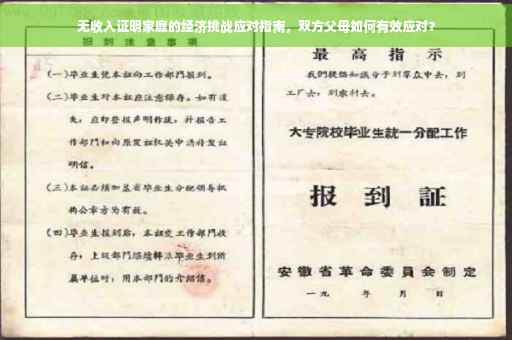 无收入证明家庭的经济挑战应对指南，双方父母如何有效应对？
报到注意事项
(一)毕业生凭本证向工作部门报到。
(二)毕业生对本证应注意保存。如有遗
失，应即登报声明作废，并报告工
作部门和向原发证机关申请补发证
明信。
(三)本证必须加盖省毕业生分配领导机
构公章方为有效。
(四)毕业生报到后，本证交工作部门收
存；上级部门继续转派毕业生到所
属单位时，用本部门的介绍信。
最高指示
我们提倡知识分子到群众中去，到
工厂去，到农村去。
大专院校毕业生统一分配工作
报到证
安徽省革命委员会制定
一九 年 月 日